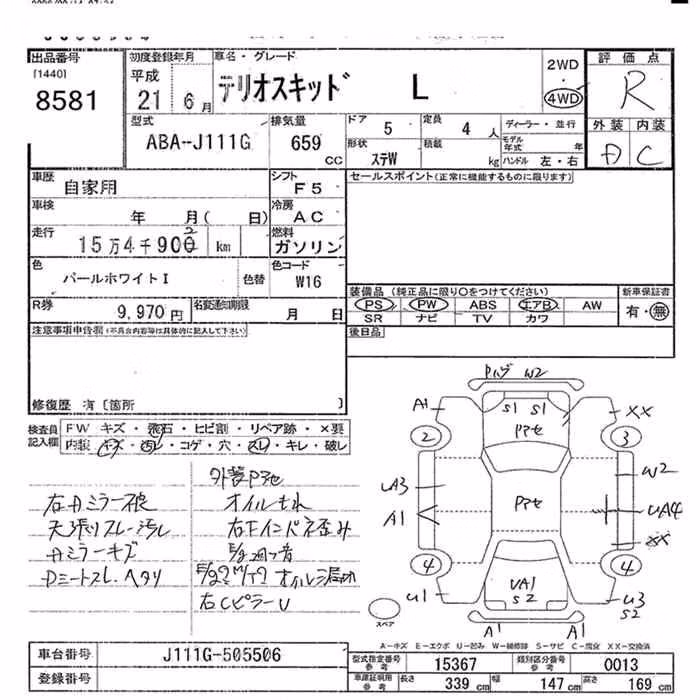 出品番号
[1440]
8581
初度登録年月
平成
21 6月
車名・グレード
テリオスキッド L
2WD
4WD
評価点
R
外装 内装
A C
型式
ABA-J111G
排気量
659
cc
ドア 5
定員 4 人
ディーラー・並行
形状
ステW
積載
kg
モデル年式 年
ハンドル 左・右
車歴
自家用
シフト
F5
セールスポイント(正常に機能するものに限ります)
車検
年 月( 日)
冷房
AC
走行
15万4千900 km
燃料
ガソリン
色
パールホワイトI
色替
色コード
W16
R券
9,970円
名変通知期限
月 日
装備品 (純正品に限り○をつけてください)
新車保証書
PS PW ABS エアB AW
有・無
SR ナビ TV カワ
後日品
注意事項申告欄(不具合内容等は具体的に記入して下さい)
修復歴 有〔箇所 〕
検査員記入欄
FW キズ・飛石・ヒビ割・リペア跡・×要
内装 キズ・汚レ・コゲ・穴・スレ・キレ・破レ
オイルもれ
右Fインパネ歪み
天張りスレ・汚レ
Aミラーキズ
Dシートスレ、ヘタリ
右CピラーU
W2
A1
S1 S1
XX
2
3
UA3
W2
A1
UA4
XX
4
4
U1
UA1
S2
U3
S2
A1 A1
スペア
A-キズ E-エクボ U-凹み W-補修跡 S-サビ C-腐食 XX-交換済
車台番号
J111G-505506
登録番号
型式指定番号
参考
15367
類別区分番号
参考
0013
車庫証明用
参考
長さ 339 cm
幅 147 cm
高さ 169 cm